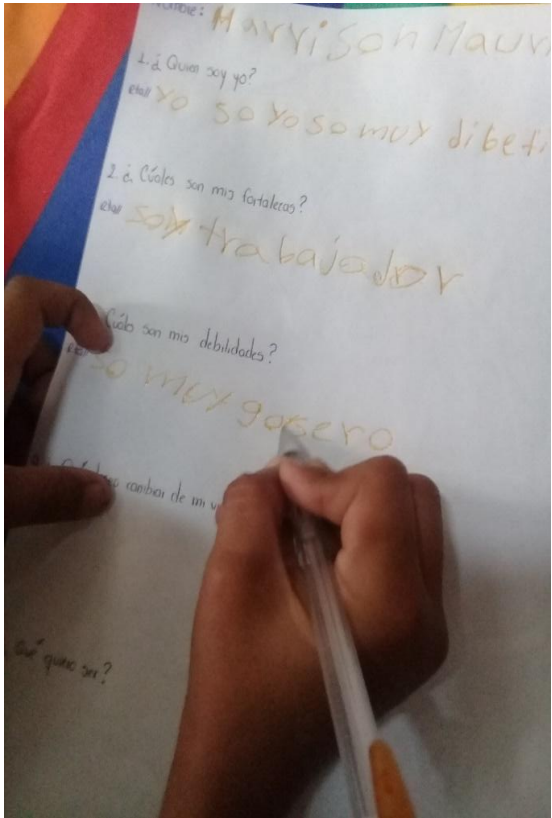 Nombre: Harrison Maur
1. ¿Quien soy yo?
Yo so yo so muy dibeti
2 ¿Cuáles son mis fortalezas?
soy trabajador
¿Cuáles son mis debilidades?
so muy gosero
cambiar de mi
Qué quiero ser?